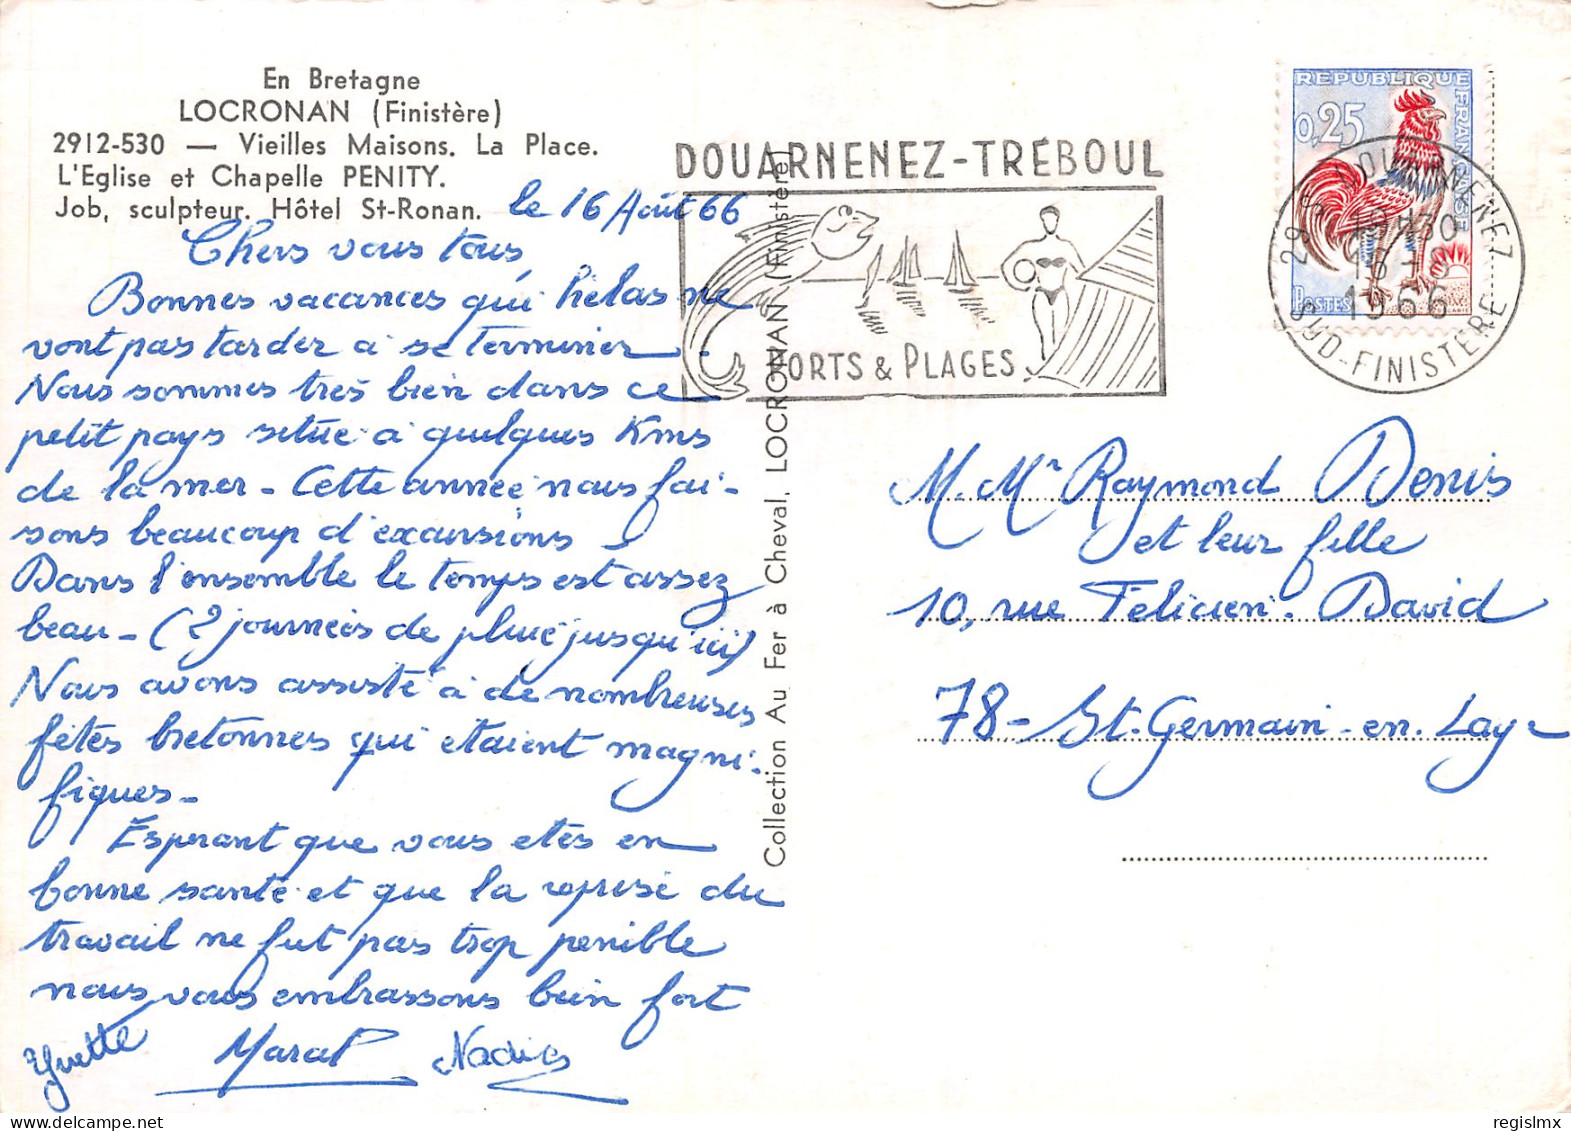 En Bretagne
LOCRONAN (Finistère)
2912-530 — Vieilles Maisons. La Place.
L'Eglise et Chapelle PENITY.
Job, sculpteur. Hôtel St-Ronan.
le 16 Août 66
Chers vous tous,
Bonnes vacances qui hélas ne
vont pas tarder à se terminer.
Nous sommes très bien dans ce
petit pays situé à quelques Kms
de la mer - Cette année nous fai-
sons beaucoup d'excursions
Dans l'ensemble le temps est assez
beau - (2 journées de pluie jusqu'ici)
Nous avons assisté à de nombreuses
fêtes bretonnes qui étaient magni-
fiques -
Espérant que vous êtes en
bonne santé et que la reprise du
travail ne fut pas trop pénible
nous vous embrassons bien fort
Yvette Marcel Nadia
Collection Au Fer à Cheval, LOCRONAN (Finistère)
DOUARNENEZ-TRÉBOUL
PORTS & PLAGES
REPUBLIQUE FRANÇAISE
0,25
POSTES
29 S DOUARNENEZ
1966
SUD-FINISTERE
M. Me Raymond Denis
et leur fille
10, rue Félicien David
78 - St. Germain-en-Laye
regislmx